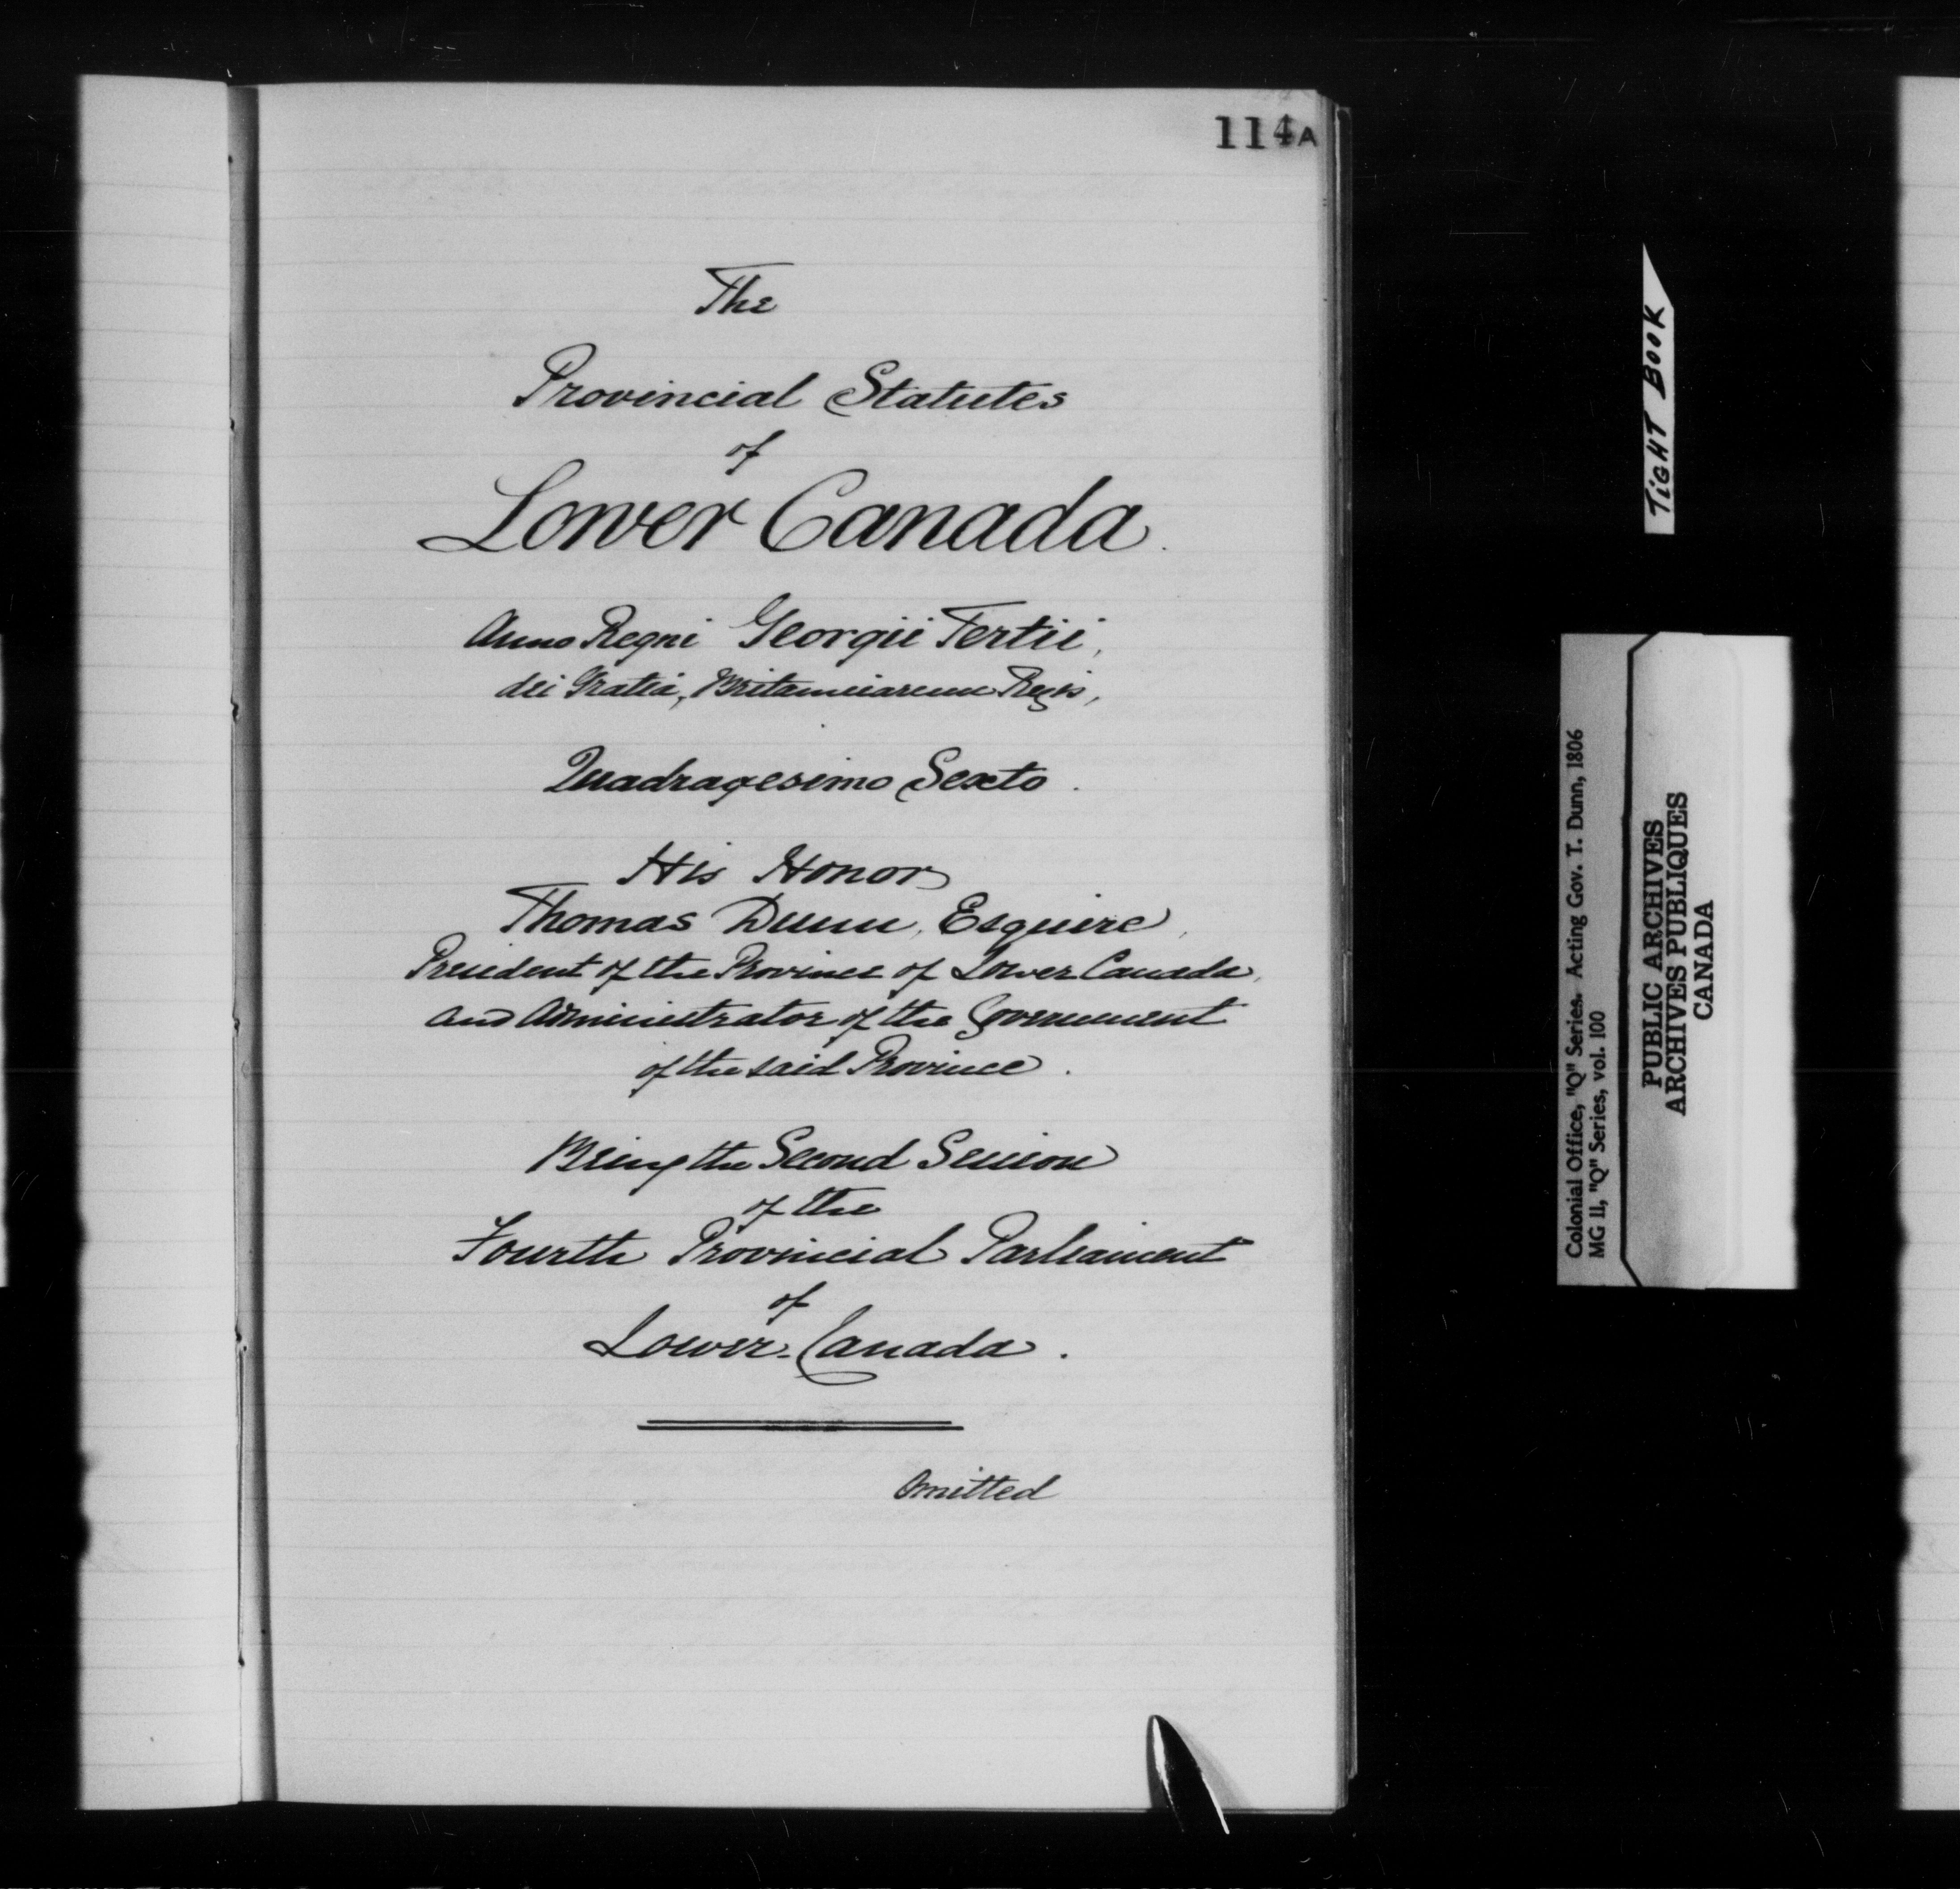 114A
The
Provincial Statutes
of
Lower Canada.
Anno Regni Georgii Tertii,
dei Gratia, Britanniarum Regis,
Quadragesimo Sexto.
His Honor
Thomas Dunn, Esquire,
President of the Province of Lower Canada,
and Administrator of the Government
of the said Province.
Being the Second Session
of the
Fourth Provincial Parliament
of
Lower-Canada.
Omitted
TIGHT BOOK
Colonial Office, "Q" Series. Acting Gov. T. Dunn, 1806
MG 11, "Q" Series, vol. 100
PUBLIC ARCHIVES
ARCHIVES PUBLIQUES
CANADA